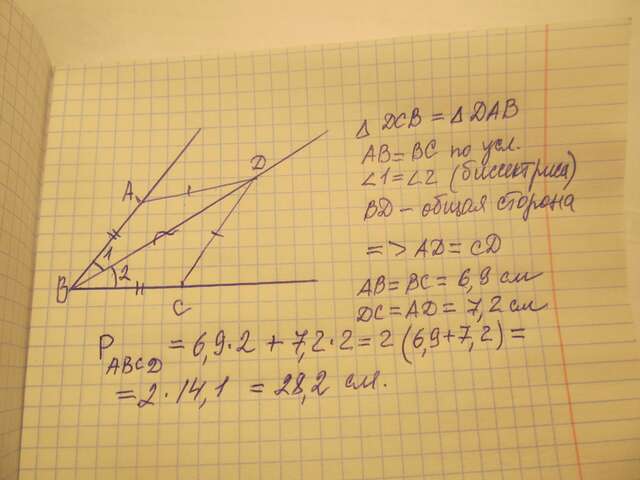 A
D
1
2
B
C
Δ DCB = Δ DAB
AB = BC по усл.
∠1 = ∠2 (биссектриса)
BD – общая сторона
=> AD = CD
AB = BC = 6,9 см
DC = AD = 7,2 см
P ABCD = 6,9 · 2 + 7,2 · 2 = 2 (6,9 + 7,2) =
= 2 · 14,1 = 28,2 см.